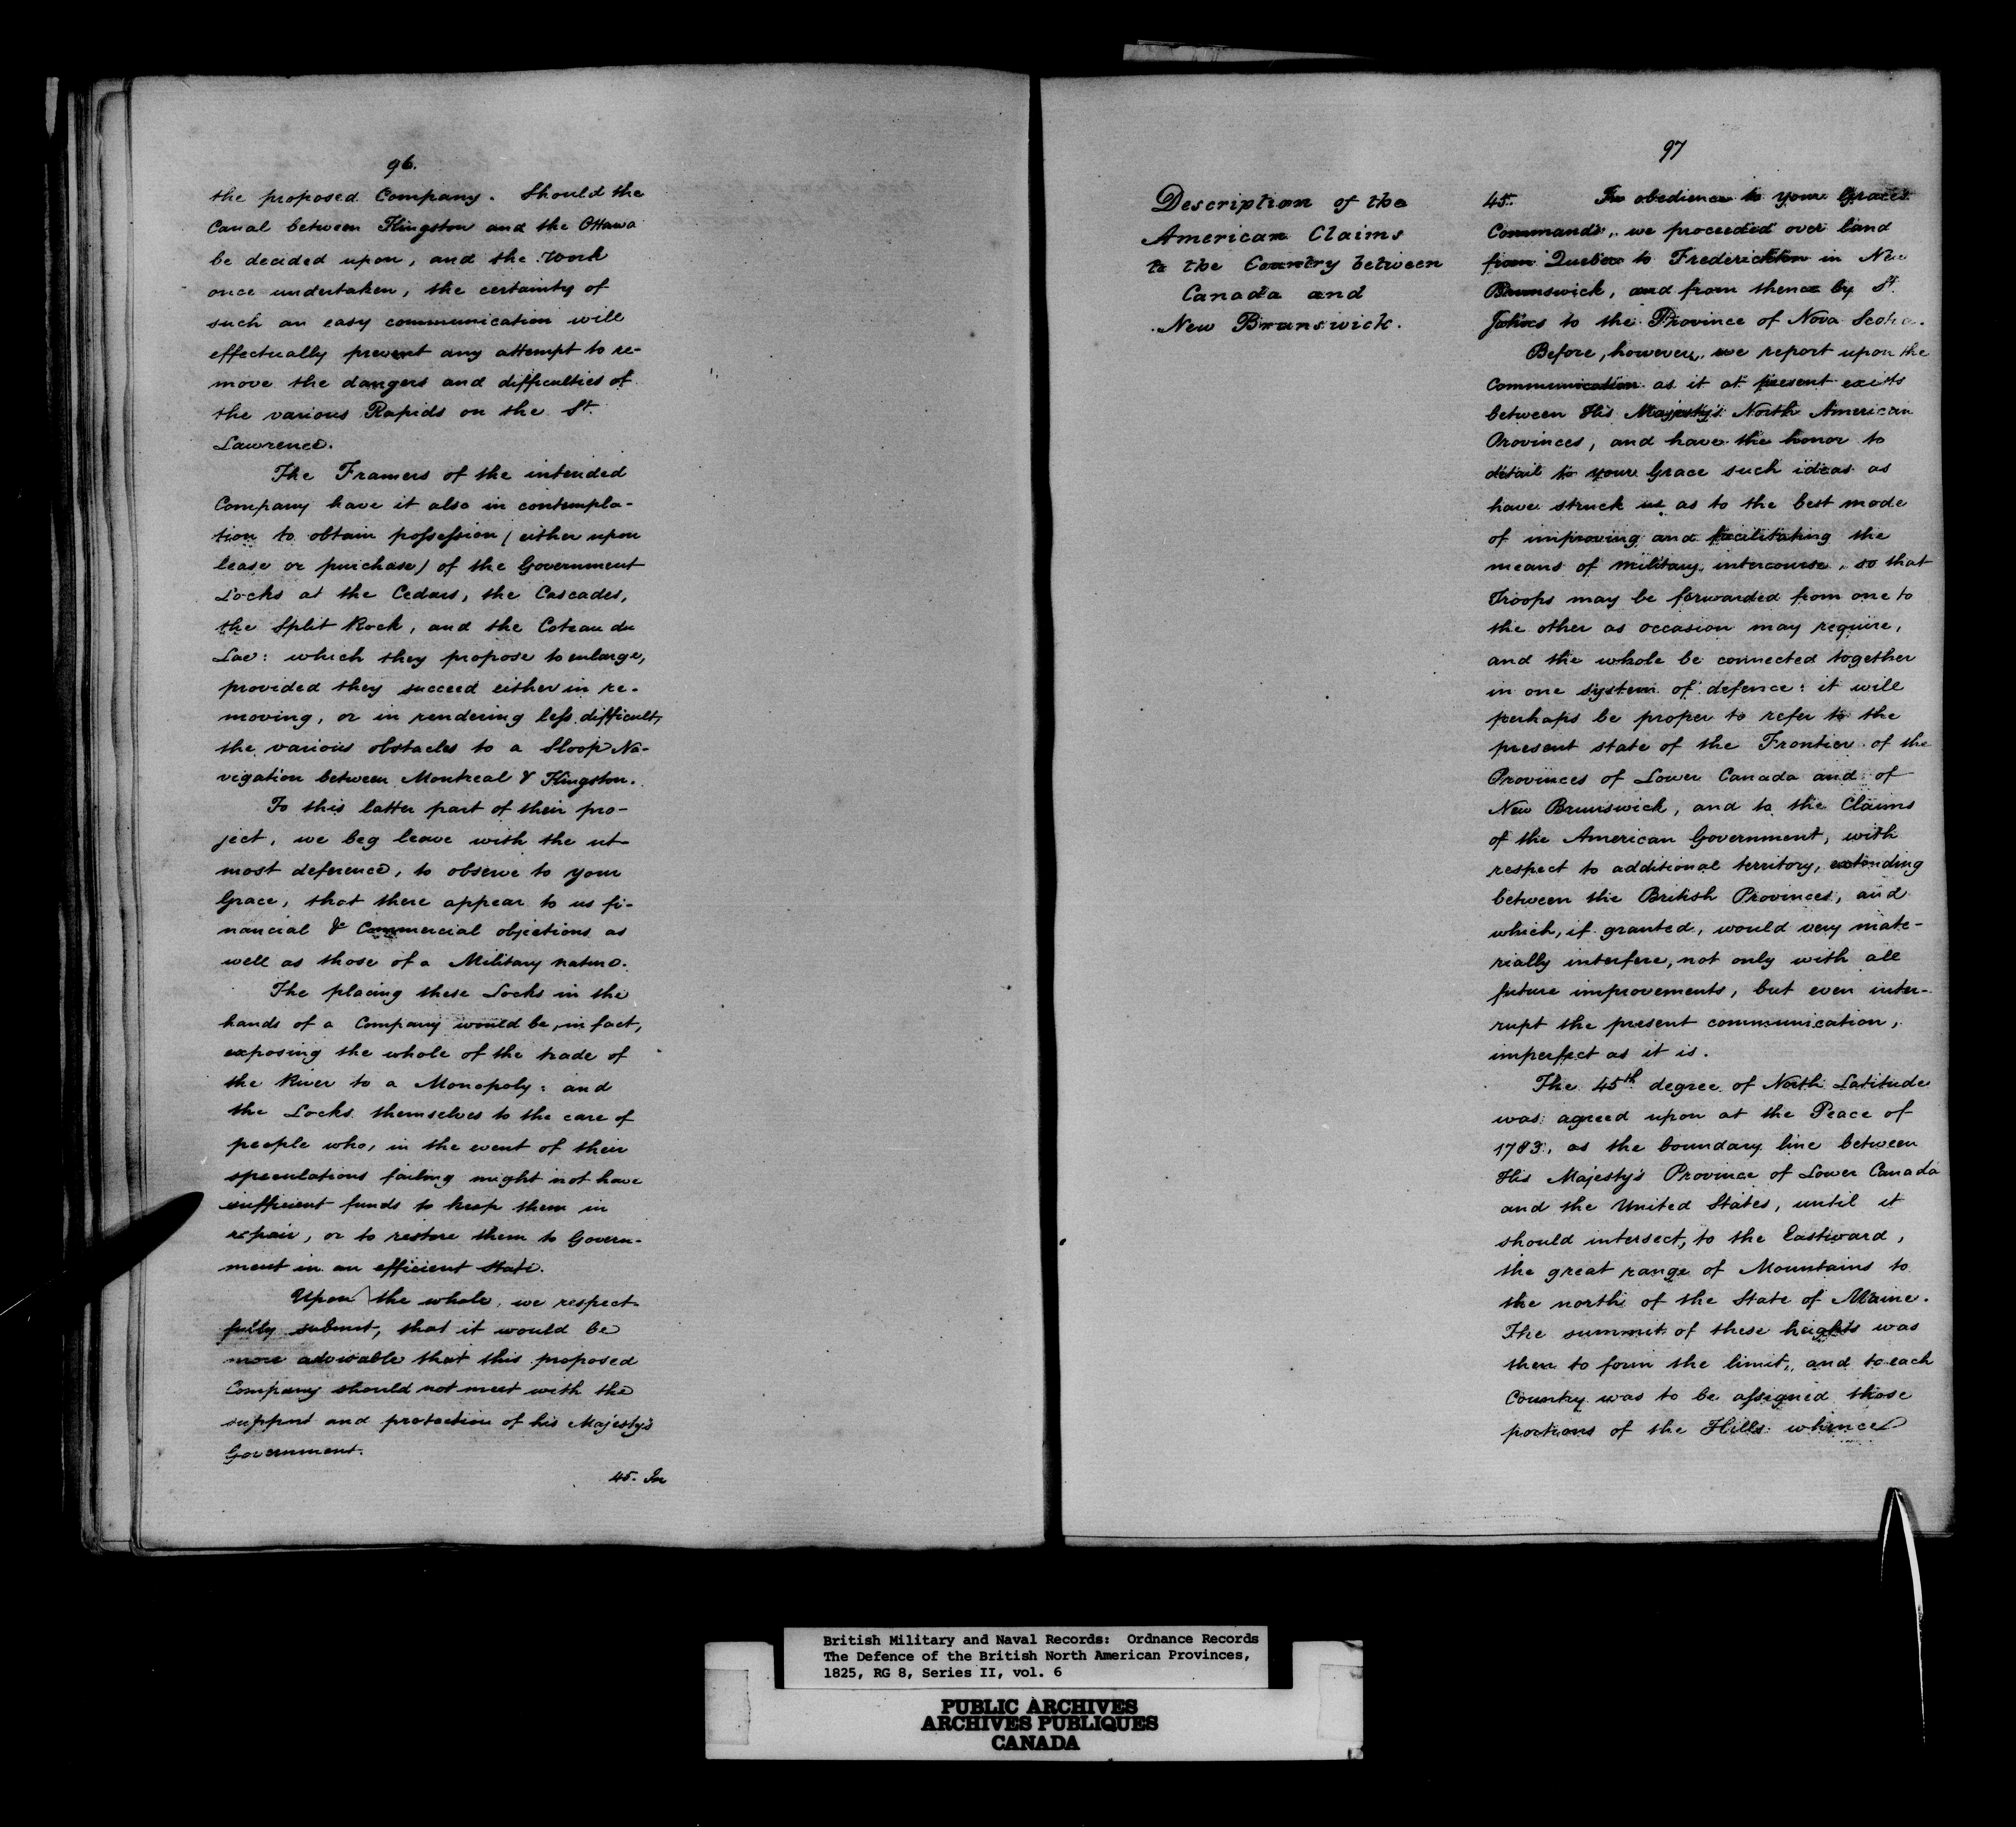 96.
the proposed Company. Should the
Canal between Kingston and the Ottawa
be decided upon, and the Work
once undertaken, the certainty of
such an easy communication will
effectually prevent any attempt to re-
move the dangers and difficulties of
the various Rapids on the St.
Lawrence.
The Framers of the intended
Company have it also in contempla-
tion to obtain possession (either upon
lease or purchase) of the Government
Locks at the Cedars, the Cascades,
the Split Rock, and the Coteau du
Lac: which they propose to enlarge,
provided they succeed either in re-
moving, or in rendering less difficult,
the various obstacles to a Sloop Na-
vigation between Montreal & Kingston.
To this latter part of their pro-
ject, we beg leave with the ut-
most deference, to observe to your
Grace, that there appear to us fi-
nancial & Commercial objections as
well as those of a Military nature.
The placing these Locks in the
hands of a Company would be, in fact,
exposing the whole of the trade of
the River to a Monopoly: and
the Locks themselves to the care of
people who, in the event of their
speculations failing might not have
sufficient funds to keep them in
repair, or to restore them to Govern-
ment in an efficient state.
Upon the whole, we respect-
fully submit, that it would be
more advisable that this proposed
Company should not meet with the
support and protection of his Majesty's
Government.
45. In
97
Description of the
American Claims
to the Country between
Canada and
New Brunswick.
45. In obedience to your Grace's
Commands, we proceeded over land
from Quebec to Fredericton in New
Brunswick, and from thence by St.
Johns to the Province of Nova Scotia.
Before, however, we report upon the
Communication as it at present exists
between His Majesty's North American
Provinces, and have the honor to
detail to your Grace such ideas as
have struck us as to the best mode
of improving and facilitating the
means of military intercourse, so that
Troops may be forwarded from one to
the other as occasion may require,
and the whole be connected together
in one system of defence: it will
perhaps be proper to refer to the
present state of the Frontier of the
Provinces of Lower Canada and of
New Brunswick, and to the Claims
of the American Government, with
respect to additional territory, extending
between the British Provinces, and
which, if granted, would very mate-
rially interfere, not only with all
future improvements, but even inter-
rupt the present communication,
imperfect as it is.
The 45th degree of North Latitude
was agreed upon at the Peace of
1783, as the boundary line between
His Majesty's Province of Lower Canada
and the United States, until it
should intersect, to the Eastward,
the great range of Mountains to
the north of the State of Maine.
The summit of these heights was
then to form the limit, and to each
Country was to be assigned those
portions of the Hills whence
British Military and Naval Records: Ordnance Records
The Defence of the British North American Provinces,
1825, RG 8, Series II, vol. 6
PUBLIC ARCHIVES
ARCHIVES PUBLIQUES
CANADA